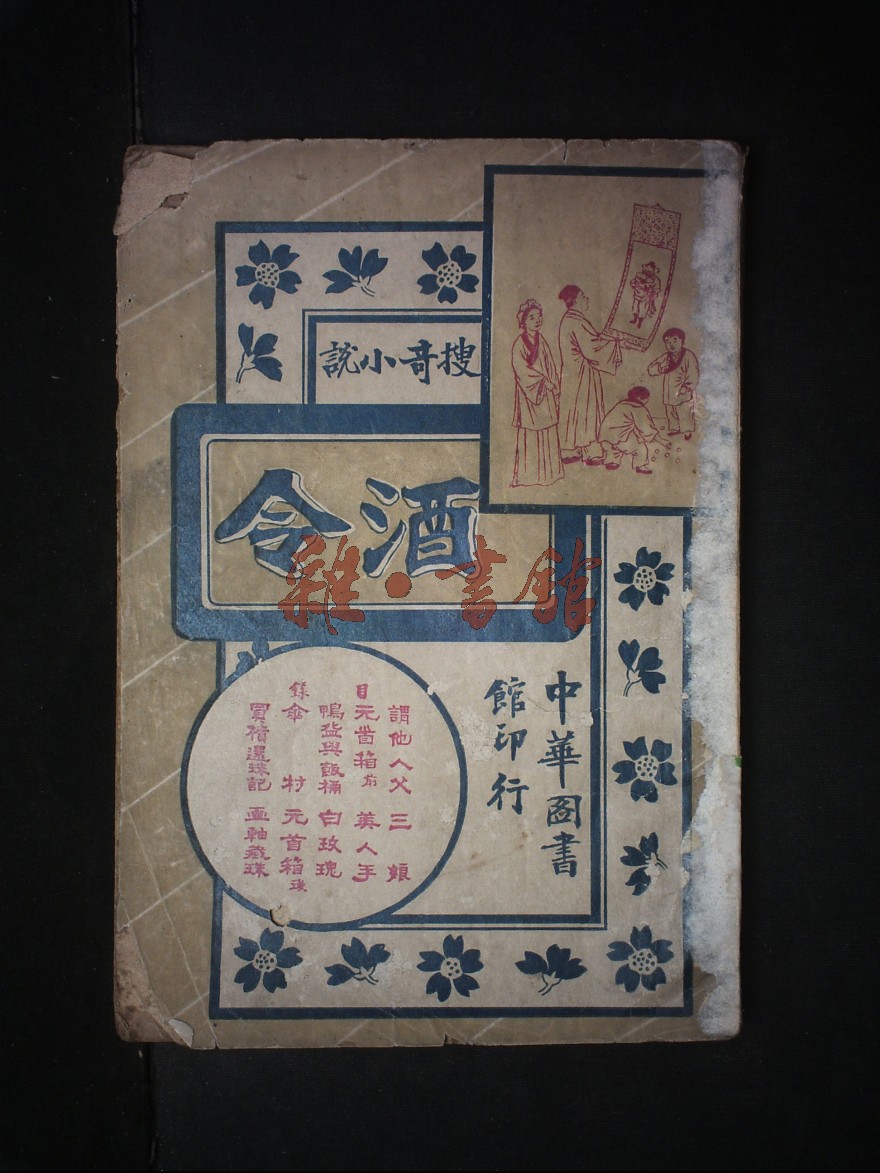 搜奇小說
酒令
雜·書館
中華圖書
館印行
目錄
謂他人父 三娘
元首箱前 美人手
鴨盆與飯桶 白玫瑰
傘 村 元首箱
買櫝還珠記 畫軸藏珠